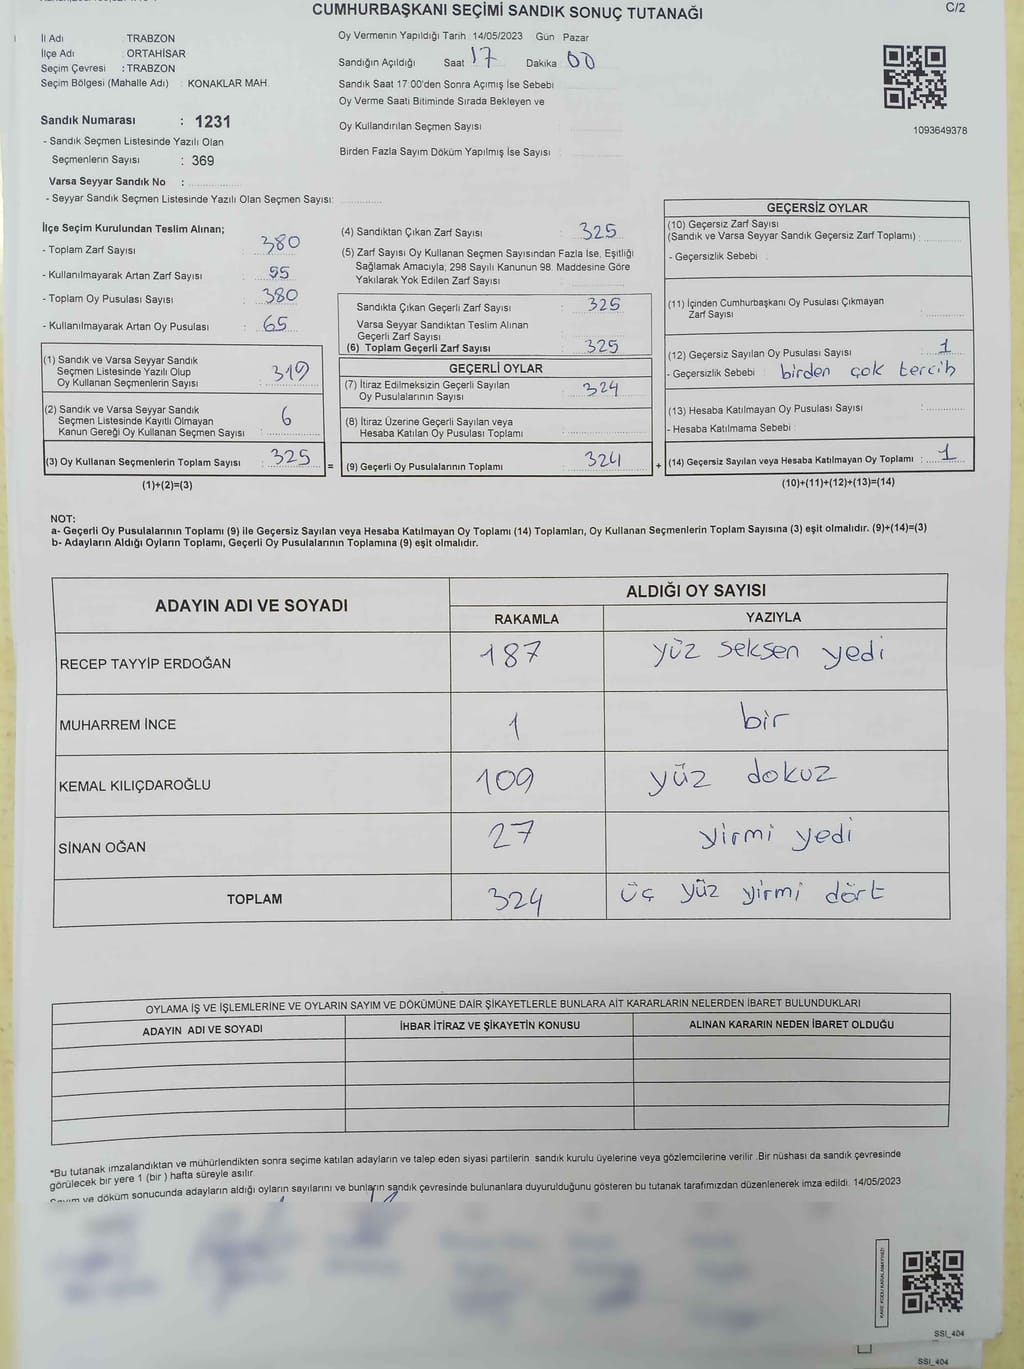 CUMHURBAŞKANI SEÇİMİ SANDIK SONUÇ TUTANAĞI
C/2
İl Adı : TRABZON
İlçe Adı : ORTAHİSAR
Seçim Çevresi : TRABZON
Seçim Bölgesi (Mahalle Adı) : KONAKLAR MAH.
Sandık Numarası : 1231
- Sandık Seçmen Listesinde Yazılı Olan
Seçmenlerin Sayısı : 369
Varsa Seyyar Sandık No :
- Seyyar Sandık Seçmen Listesinde Yazılı Olan Seçmen Sayısı:
Oy Vermenin Yapıldığı Tarih : 14/05/2023 Gün Pazar
Sandığın Açıldığı Saat 17 Dakika 00
Sandık Saat 17:00'den Sonra Açımış İse Sebebi
Oy Verme Saati Bitiminde Sırada Bekleyen ve
Oy Kullandırılan Seçmen Sayısı
Birden Fazla Sayım Döküm Yapılmış İse Sayısı :
1093649378
İlçe Seçim Kurulundan Teslim Alınan;
- Toplam Zarf Sayısı : 380
- Kullanılmayarak Artan Zarf Sayısı : 55
- Toplam Oy Pusulası Sayısı : 380
- Kullanılmayarak Artan Oy Pusulası : 65
(1) Sandık ve Varsa Seyyar Sandık
Seçmen Listesinde Yazılı Olup
Oy Kullanan Seçmenlerin Sayısı : 319
(2) Sandık ve Varsa Seyyar Sandık
Seçmen Listesinde Kayıtlı Olmayan
Kanun Gereği Oy Kullanan Seçmen Sayısı : 6
(3) Oy Kullanan Seçmenlerin Toplam Sayısı : 325 =
(1)+(2)=(3)
(4) Sandıktan Çıkan Zarf Sayısı : 325
(5) Zarf Sayısı Oy Kullanan Seçmen Sayısından Fazla İse, Eşitliği
Sağlamak Amacıyla; 298 Sayılı Kanunun 98. Maddesine Göre
Yakılarak Yok Edilen Zarf Sayısı :
Sandıkta Çıkan Geçerli Zarf Sayısı : 325
Varsa Seyyar Sandıktan Teslim Alınan
Geçerli Zarf Sayısı
(6) Toplam Geçerli Zarf Sayısı : 325
GEÇERLİ OYLAR
(7) İtiraz Edilmeksizin Geçerli Sayılan
Oy Pusulalarının Sayısı : 324
(8) İtiraz Üzerine Geçerli Sayılan veya
Hesaba Katılan Oy Pusulası Toplamı :
(9) Geçerli Oy Pusulalarının Toplamı : 324 +
GEÇERSİZ OYLAR
(10) Geçersiz Zarf Sayısı
(Sandık ve Varsa Seyyar Sandık Geçersiz Zarf Toplamı) :
- Geçersizlik Sebebi :
(11) İçinden Cumhurbaşkanı Oy Pusulası Çıkmayan
Zarf Sayısı :
(12) Geçersiz Sayılan Oy Pusulası Sayısı : 1
- Geçersizlik Sebebi : birden çok tercih
(13) Hesaba Katılmayan Oy Pusulası Sayısı :
- Hesaba Katılmama Sebebi :
(14) Geçersiz Sayılan veya Hesaba Katılmayan Oy Toplamı : 1
(10)+(11)+(12)+(13)=(14)
NOT:
a- Geçerli Oy Pusulalarının Toplamı (9) ile Geçersiz Sayılan veya Hesaba Katılmayan Oy Toplamı (14) Toplamları, Oy Kullanan Seçmenlerin Toplam Sayısına (3) eşit olmalıdır. (9)+(14)=(3)
b- Adayların Aldığı Oyların Toplamı, Geçerli Oy Pusulalarının Toplamına (9) eşit olmalıdır.
ADAYIN ADI VE SOYADI
ALDIĞI OY SAYISI
RAKAMLA YAZIYLA
RECEP TAYYİP ERDOĞAN 187 yüz seksen yedi
MUHARREM İNCE 1 bir
KEMAL KILIÇDAROĞLU 109 yüz dokuz
SİNAN OĞAN 27 yirmi yedi
TOPLAM 324 üç yüz yirmi dört
OYLAMA İŞ VE İŞLEMLERİNE VE OYLARIN SAYIM VE DÖKÜMÜNE DAİR ŞİKAYETLERLE BUNLARA AİT KARARLARIN NELERDEN İBARET BULUNDUKLARI
ADAYIN ADI VE SOYADI İHBAR İTİRAZ VE ŞİKAYETİN KONUSU ALINAN KARARIN NEDEN İBARET OLDUĞU
*Bu tutanak imzalandıktan ve mühürlendikten sonra seçime katılan adayların ve talep eden siyasi partilerin sandık kurulu üyelerine veya gözlemcilerine verilir .Bir nüshası da sandık çevresinde
görülecek bir yere 1 (bir ) hafta süreyle asılır.
Sayım ve döküm sonucunda adayların aldığı oyların sayılarını ve bunların sandık çevresinde bulunanlara duyurulduğunu gösteren bu tutanak tarafımızdan düzenlenerek imza edildi. 14/05/2023
SSI_404
SSI_404